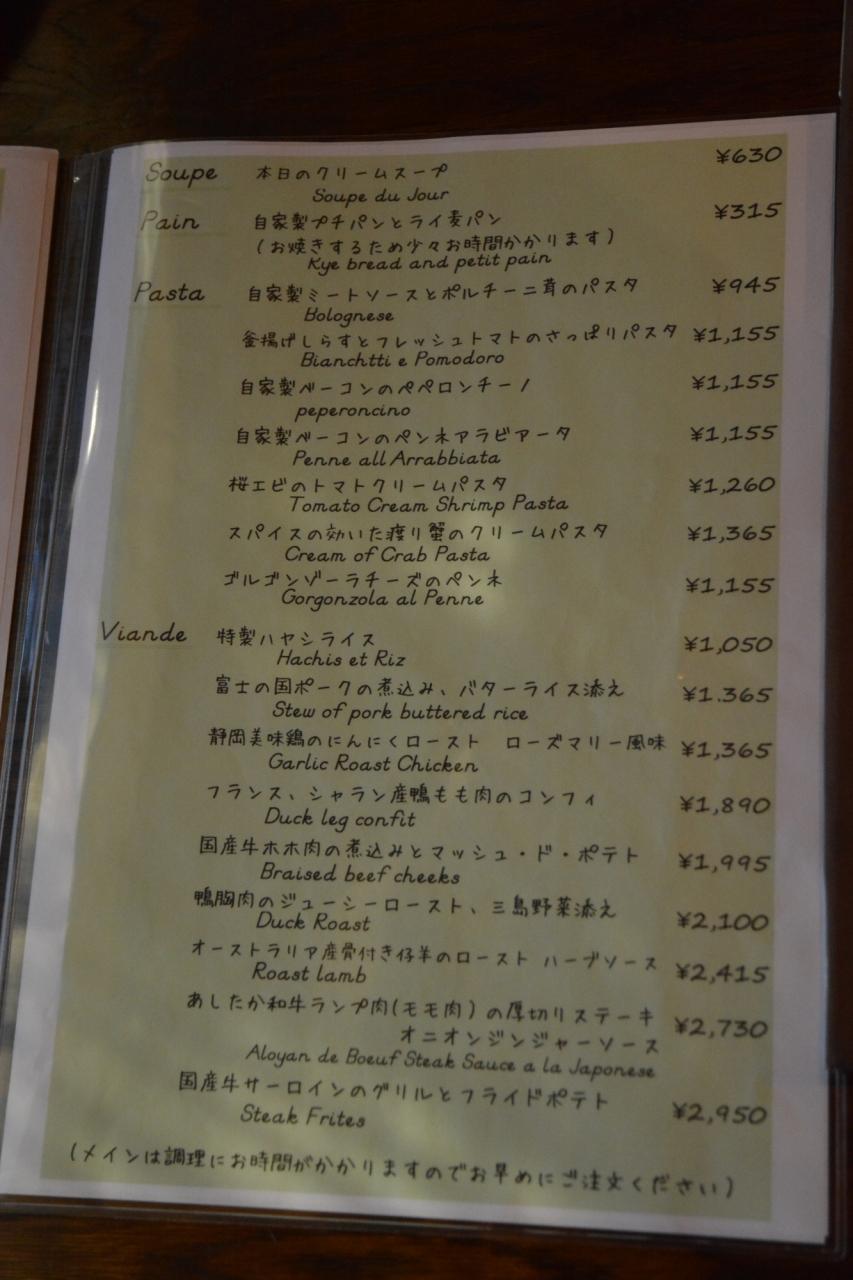 Soupe 本日のクリームスープ ¥630
Soupe du Jour
Pain 自家製プチパンとライ麦パン ¥315
(お焼きするため少々お時間かかります)
Kye bread and petit pain
Pasta 自家製ミートソースとポルチーニ茸のパスタ ¥945
Bolognese
釜揚げしらすとフレッシュトマトのさっぱりパスタ ¥1,155
Bianchtti e Pomodoro
自家製ベーコンのペペロンチーノ ¥1,155
peperoncino
自家製ベーコンのペンネアラビアータ ¥1,155
Penne all Arrabbiata
桜エビのトマトクリームパスタ ¥1,260
Tomato Cream Shrimp Pasta
スパイスの効いた渡り蟹のクリームパスタ ¥1,365
Cream of Crab Pasta
ゴルゴンゾーラチーズのペンネ ¥1,155
Gorgonzola al Penne
Viande 特製ハヤシライス ¥1,050
Hachis et Riz
富士の国ポークの煮込み、バターライス添え ¥1.365
Stew of pork buttered rice
静岡美味鶏のにんにくロースト ローズマリー風味 ¥1,365
Garlic Roast Chicken
フランス、シャラン産鴨もも肉のコンフィ ¥1,890
Duck leg confit
国産牛ホホ肉の煮込みとマッシュ・ド・ポテト ¥1,995
Braised beef cheeks
鴨胸肉のジューシーロースト、三島野菜添え ¥2,100
Duck Roast
オーストラリア産骨付き仔羊のロースト ハーブソース ¥2,415
Roast lamb
あしたか和牛ランプ肉(モモ肉)の厚切りステーキ ¥2,730
オニオンジンジャーソース
Aloyan de Boeuf Steak Sauce a la Japonese
国産牛サーロインのグリルとフライドポテト ¥2,950
Steak Frites
(メインは調理にお時間がかかりますのでお早めにご注文ください)